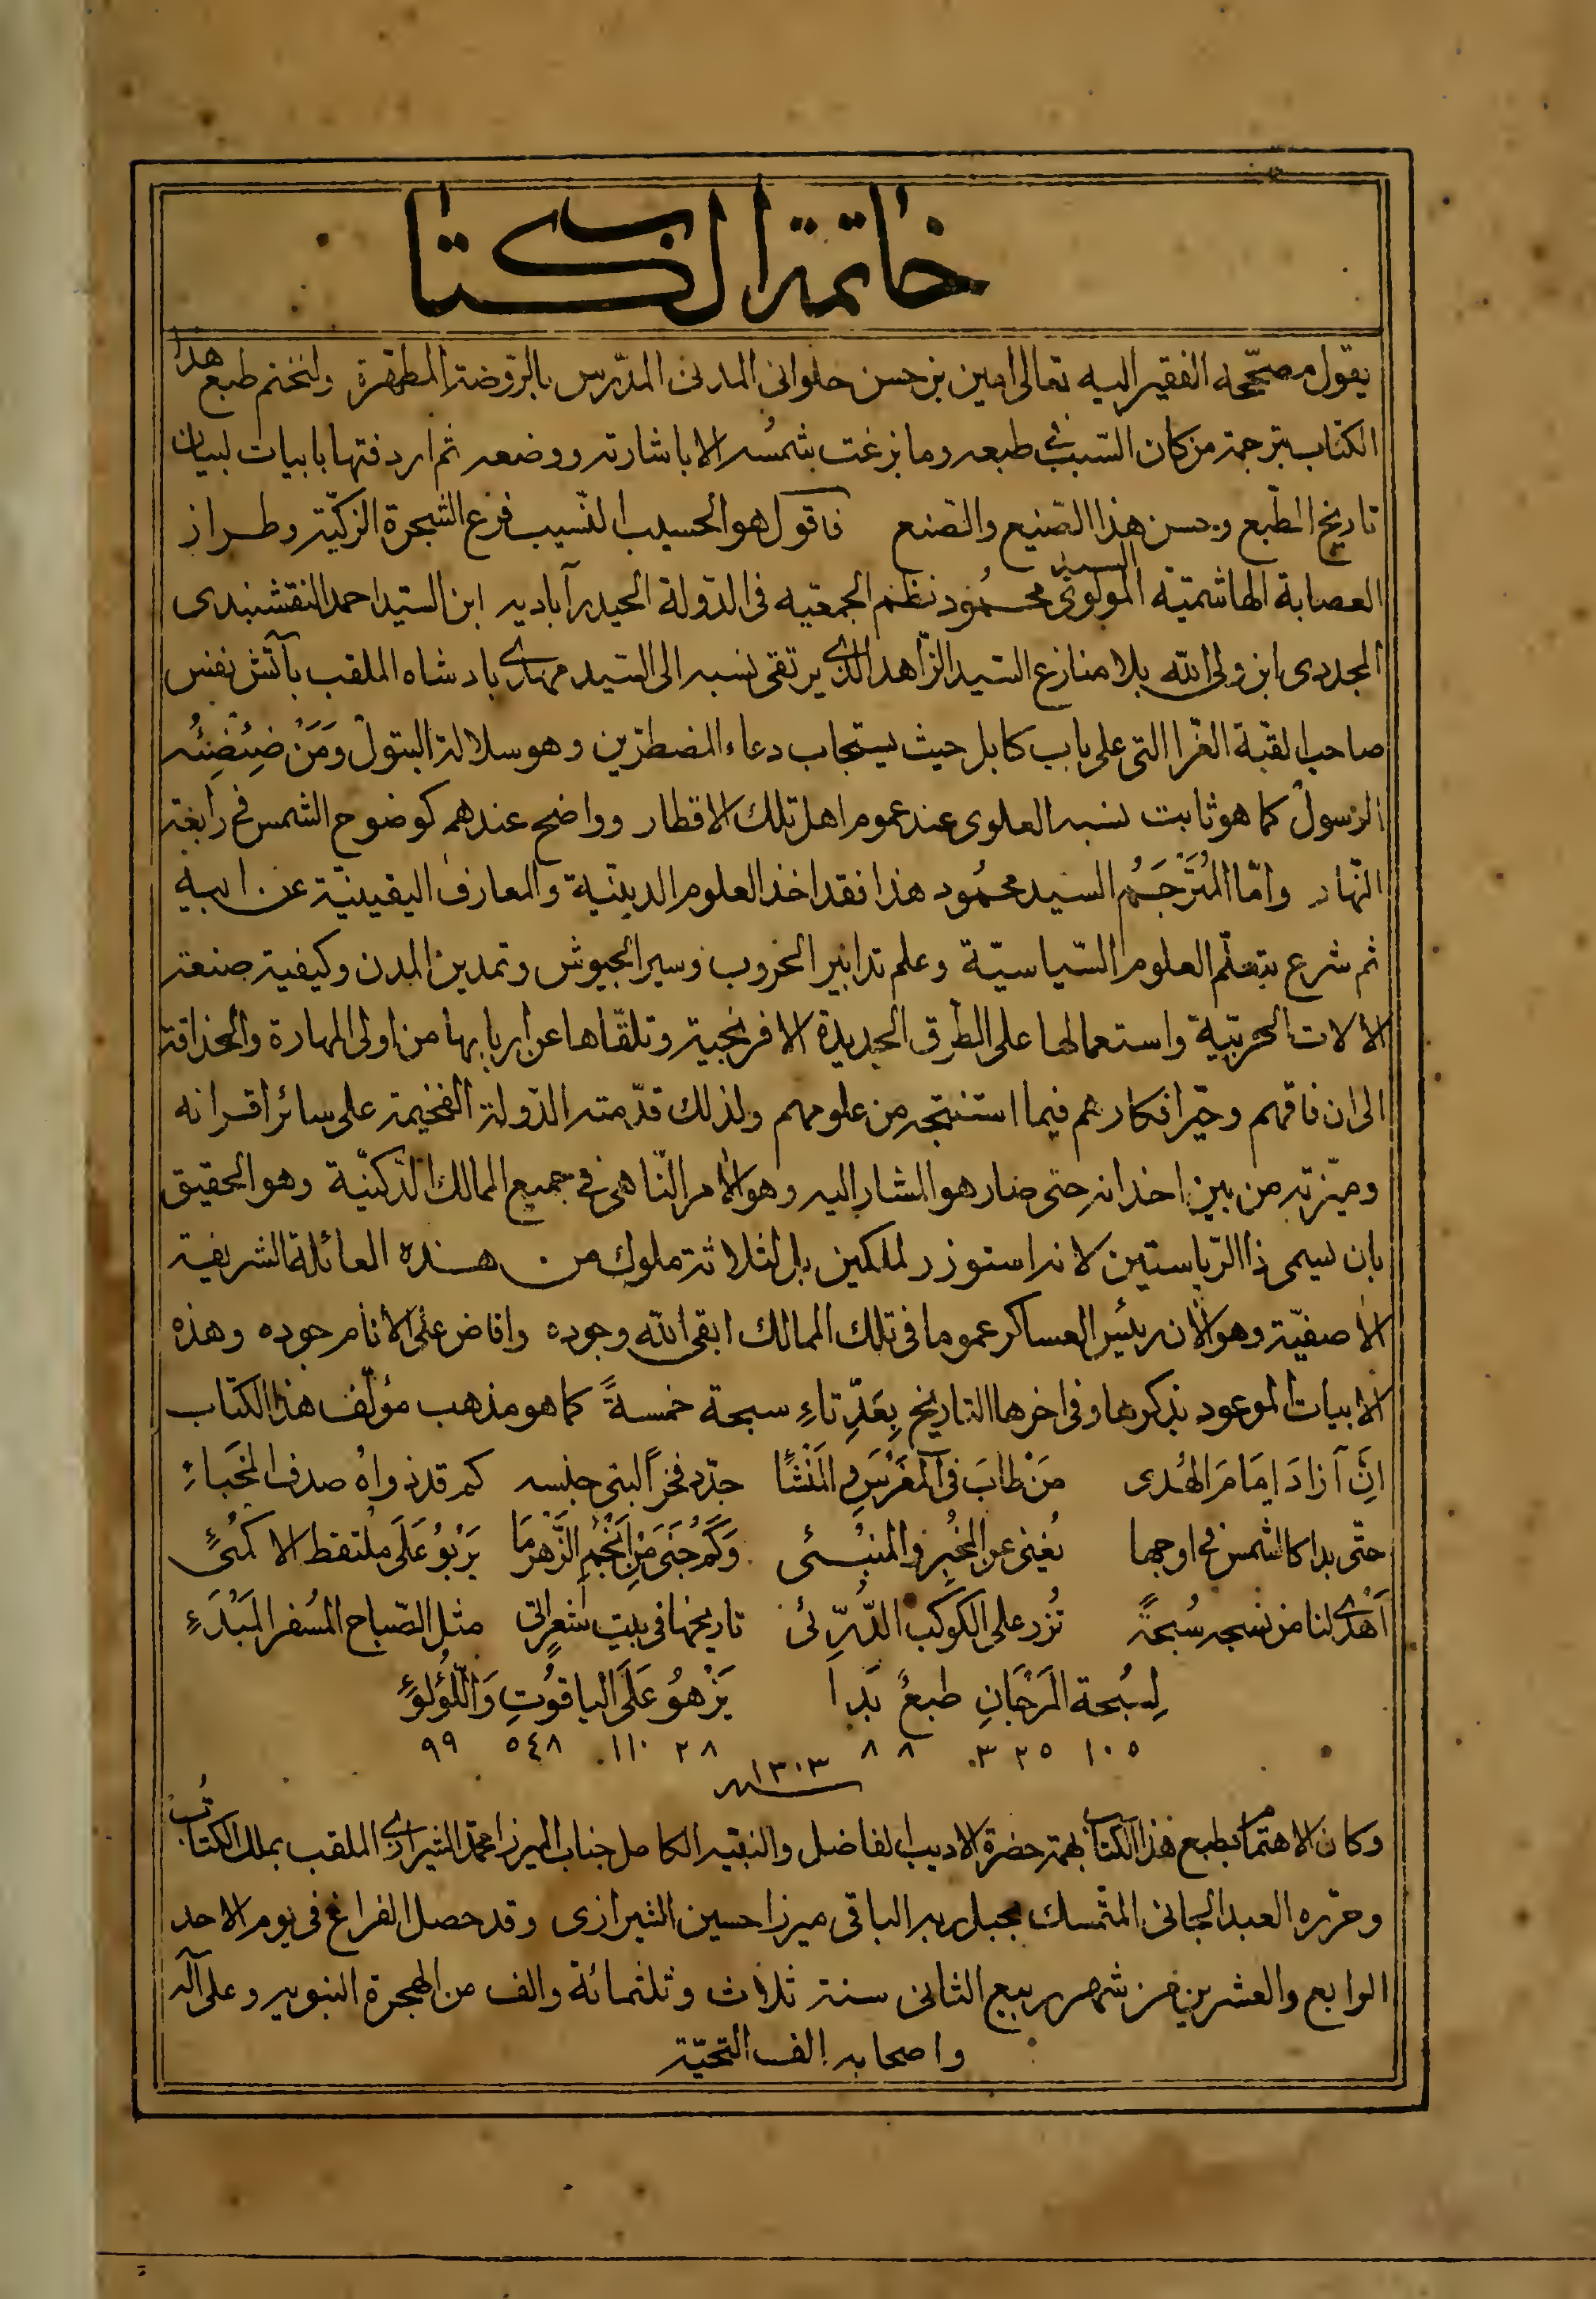 خاتمة الكتاب
يقول مصححه الفقير اليه تعالى امين بن حسن حلوانى المدنى المدّرس بالرّوضة المطهّرة ولنختم طبع هذا
الكتاب بترجمة من كان السّبب فى طبعه وما بزغت شمسُه الا باشارته ووضعه ثم اردفتها بابيات لبيان
تاريخ الطّبع وحسن هذا الصّنيع والصّنع فاقول هو الحسيب النّسيب فرع الشّجرة الزكيّة وطراز
العصابة الهاشميّة المولوى السيد محمُود نظم الجمعيه فى الدّولة الحيدرآباديه ابن السّيد احمد النقشبندى
المجددى ابن ولى الله بلا منازع السّيد الزّاهد الذى يرتقى نسبه الى السّيد مهدى بادشاه الملقب بآتش نفس
صاحب القبة الغرّا التى على باب كابل حيث يستجاب دعاء المضطرّين وهو سلالة البتول وَمَنْ ضِئضِئُه
الرّسول كما هو ثابت نسبه العلوى عند عموم اهل تلك الاقطار وواضح عندهم كوضوح الشّمس فى رابغة
النّهار وامّا المُتَرْجَمُ السيد محمُود هذا فقد اخذ العلوم الدينيّة والمعارف اليقينيّة عن ابيه
ثم شرع بتعلّم العلوم السّياسيّة وعلم تدابير الحروب وسير الجيوش وتمدين المدن وكيفية صنعة
الالات الحربيّة واستعمالها على الطّرق الجديدة الافرنجية وتلقّاها عن اربابها من اولى المهارة والحذاقة
الى ان فاقهم وحيّر افكارهم فيما استنتجه من علومهم ولذلك قدّمته الدّولة الفخيمة على سائر اقرانه
وميّزته من بين اخدانهِ حتى صار هو المشار اليه وهو الامر النّاهى فى جميع الممالك الدّكنيّة وهو الحقيق
بان يسمى ذا الرّياستين لانه استوزر لملكين بل لثلاثة ملوك من هذه العائلة الشريفة
الاصفيّة وهو الان رئيس العساكر عموما فى تلك الممالك ابقى الله وجوده وافاض على الانام جوده وهذه
الابيات الموعود بذكرها وفى اخرها التاريخ بِعَدِّ تاءِ سبحة خمسةً كما هو مذهب مؤلّف هذا الكتاب
انّ آزادَ اِمَامَ الهُدى مَنْ طابَ فى المَغرَسِ وَالمَنْشَأ جدّد فخرًا لبنى جنسه كم قد رواهُ صدف المخباء
حتّى بدا كالشمس فى اوجها يُغنى عن المُخبِر والمنبئى وَكَم جَنَى مِنْ اَنْجُمِ الزَّهْرِ مَا يَرْبُو عَلَى ملتقط الاكمُئٍ
اَهْدى لنا من نسجه سُبحةً تُزرِ على الكوكب الدُّرِّئى تاريخها فى بيت شعرٍ اتى مثل الصّباح المُسفر المَبْدَءِ
لِسُبحة المَرْجَانِ طبعٌ بَدا يَزْهوُ عَلَى الياقوُتِ وَاللّؤلؤِ
١٠٥ ٣٢٥ ٨٨ ٢٨ ١١٠ ٥٤٨ ٩٩
١٣٠٣
وكان الاهتمام بطبع هذا الكتاب بهمة حضرة الاديب الفاضل والنقيه الكامل جناب الميرزا محمّد الشيرازى الملقب بملك الكتّاب
وحرّره العبد الجانى المتمسك بحبل ربه الباقى ميرزا حسين الشيرازى وقد حصل الفراغ فى يوم الاحد
الرابع والعشرين من شهر ربيع الثانى سنة ثلاث وثلثمائة والف من الهجرة النبويه وعلى آله
واصحابه الف التحيّة